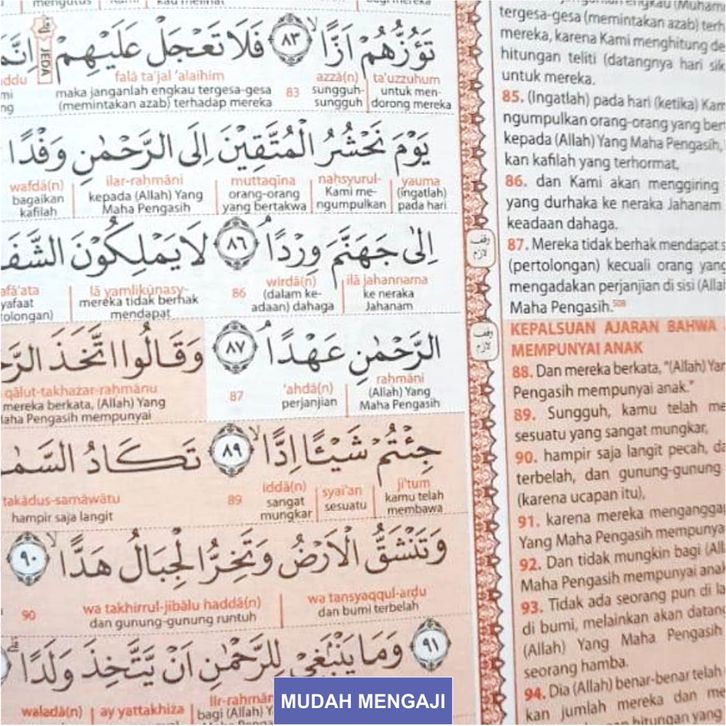 تَؤُزُّهُمْ اَزًّا ۙ ٨٣ فَلَا تَعْجَلْ عَلَيْهِمْ
ta'uzzuhum azzā(n) falā ta'jal 'alaihim
untuk men- sungguh- 83 maka janganlah engkau tergesa-gesa
dorong mereka sungguh (memintakan azab) terhadap mereka
JEDA
يَوْمَ نَحْشُرُ الْمُتَّقِيْنَ اِلَى الرَّحْمٰنِ وَفْدًا
yauma nahsyurul- muttaqīna ilar-rahmāni wafdā(n)
(ingatlah) Kami me- orang-orang kepada (Allah) Yang bagaikan
pada hari ngumpulkan yang bertakwa Maha Pengasih kafilah
اِلٰى جَهَنَّمَ وِرْدًا ۘ ٨٦ لَا يَمْلِكُوْنَ
ilā jahannama wirdā(n) lā yamlikūnasy-
ke neraka (dalam ke- 86 mereka tidak berhak
Jahanam adaan) dahaga mendapat
الرَّحْمٰنِ عَهْدًا ۘ ٨٧ وَقَالُوا اتَّخَذَ
rahmāni 'ahdā(n) qālut-takhażar-rahmānu
(Allah) Yang perjanjian 87 mereka berkata, (Allah) Yang
Maha Pengasih Maha Pengasih mempunyai
جِئْتُمْ شَيْـًٔا اِدًّا ۙ ٨٩ تَكَادُ
ji'tum syai'an iddā(n) takādus-samāwātu
kamu telah sesuatu sangat 89 hampir saja langit
membawa mungkar
وَتَنْشَقُّ الْاَرْضُ وَتَخِرُّ الْجِبَالُ هَدًّا ۙ ٩٠
wa tansyaqqul-arḍu wa takhirrul-jibālu haddā(n)
dan bumi terbelah dan gunung-gunung runtuh 90
٩١ وَمَا يَنْۢبَغِيْ لِلرَّحْمٰنِ اَنْ يَّتَّخِذَ وَلَدًا ۗ
ay yattakhiża waladā(n)
bagi (Allah)
tergesa-gesa (memintakan azab)
mereka, karena Kami menghitung
hitungan teliti (datangnya hari
untuk mereka.
85. (Ingatlah) pada hari (ketika)
ngumpulkan orang-orang yang
kepada (Allah) Yang Maha Pengasih,
kan kafilah yang terhormat,
86. dan Kami akan menggiring
yang durhaka ke neraka Jahanam
keadaan dahaga.
87. Mereka tidak berhak mendapat
(pertolongan) kecuali orang
mengadakan perjanjian di sisi
Maha Pengasih.⁵⁰⁸
KEPALSUAN AJARAN BAHWA
MEMPUNYAI ANAK
88. Dan mereka berkata, "(Allah)
Pengasih mempunyai anak."
89. Sungguh, kamu telah
sesuatu yang sangat mungkar,
90. hampir saja langit pecah,
terbelah, dan gunung-gunung
(karena ucapan itu),
91. karena mereka
Yang Maha Pengasih
92. Dan tidak mungkin bagi
Maha Pengasih mempunyai
93. Tidak ada seorang pun di
di bumi, melainkan akan
(Allah) Yang Maha Pengasih
seorang hamba.
94. Dia (Allah) benar-benar telah
kan jumlah mereka dan
hitungan yang
MUDAH MENGAJI